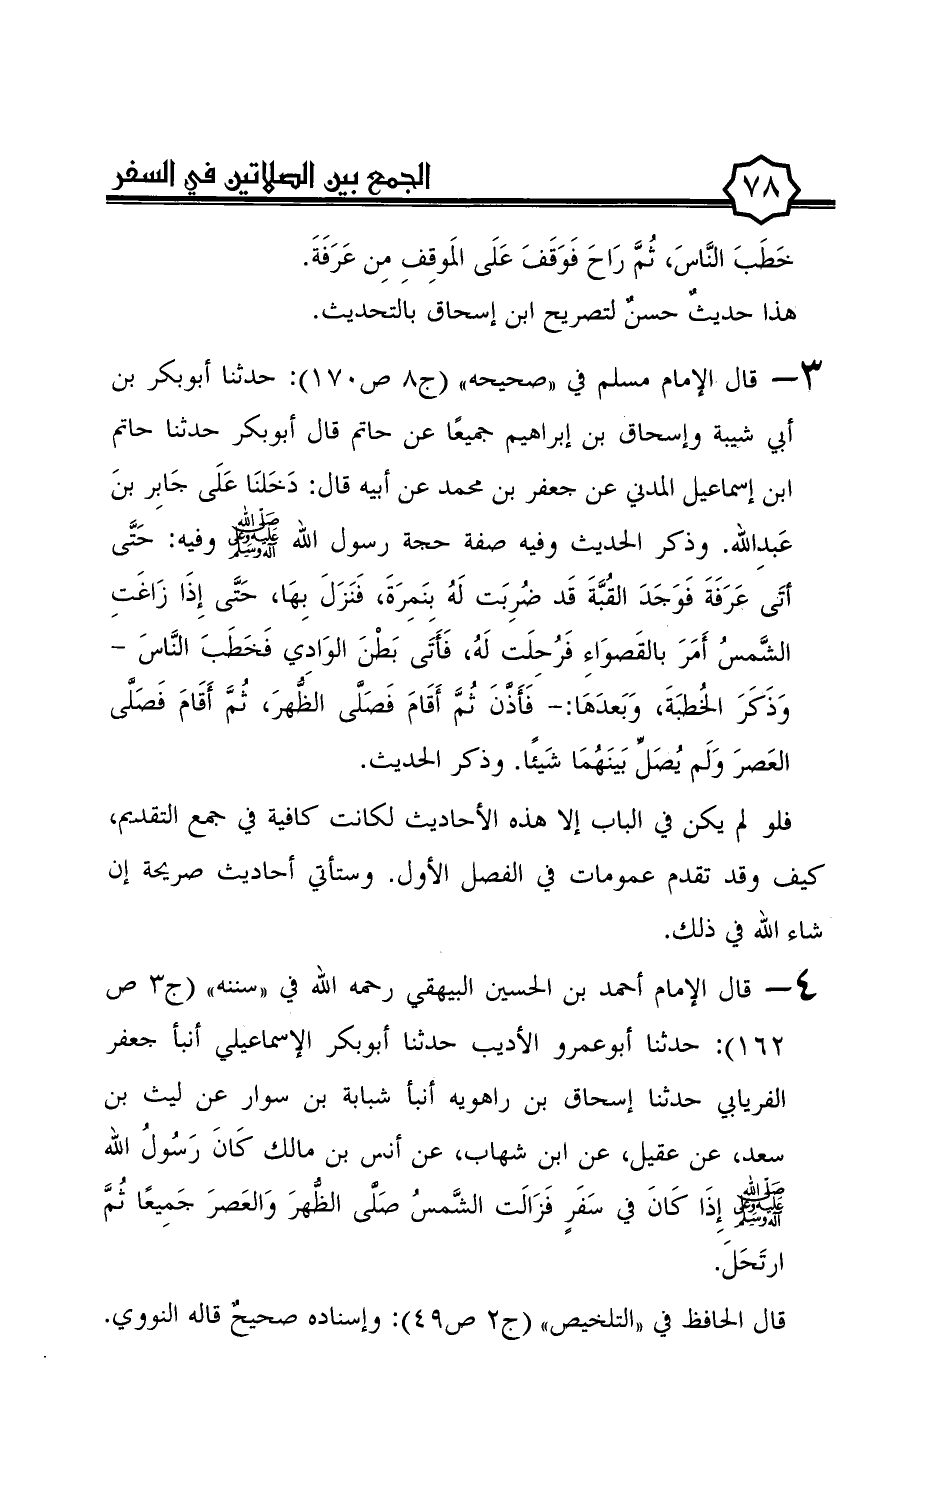 ٧٨
الجمع بين الصلاتين في السفر
خَطَبَ النَّاسَ، ثُمَّ رَاحَ فَوَقَفَ عَلَى المَوقِفِ مِن عَرَفَةَ.
هذا حديثٌ حسنٌ لتصريح ابن إسحاق بالتحديث.
٣- قال الإمام مسلم في «صحيحه» (ج٨ ص١٧٠): حدثنا أبوبكر بن
أبي شيبة وإسحاق بن إبراهيم جميعًا عن حاتم قال أبوبكر حدثنا حاتم
ابن إسماعيل المدني عن جعفر بن محمد عن أبيه قال: دَخَلنَا عَلَى جَابِرِ بنِ
عَبدِاللهِ. وذكر الحديث وفيه صفة حجة رسول الله ﷺ وفيه: حَتَّى
أَتَى عَرَفَةَ فَوَجَدَ القُبَّةَ قَد ضُرِبَت لَهُ بِنَمِرَةَ، فَنَزَلَ بِهَا، حَتَّى إِذَا زَاغَتِ
الشَّمسُ أَمَرَ بِالقَصوَاءِ فَرُحِلَت لَهُ، فَأَتَى بَطْنَ الوَادِي فَخَطَبَ النَّاسَ -
وَذَكَرَ الخُطبَةَ، وَبَعدَهَا:- فَأَذَّنَ ثُمَّ أَقَامَ فَصَلَّى الظُّهرَ، ثُمَّ أَقَامَ فَصَلَّى
العَصرَ وَلَم يُصَلِّ بَينَهُمَا شَيئًا. وذكر الحديث.
فلو لم يكن في الباب إلا هذه الأحاديث لكانت كافية في جمع التقديم،
كيف وقد تقدم عمومات في الفصل الأول. وستأتي أحاديث صريحة إن
شاء الله في ذلك.
٤- قال الإمام أحمد بن الحسين البيهقي رحمه الله في «سننه» (ج٣ ص
١٦٢): حدثنا أبوعمرو الأديب حدثنا أبوبكر الإسماعيلي أنبأ جعفر
الفريابي حدثنا إسحاق بن راهويه أنبأ شبابة بن سوار عن ليث بن
سعد، عن عقيل، عن ابن شهاب، عن أنس بن مالك كَانَ رَسُولُ الله
ﷺ إِذَا كَانَ في سَفَرٍ فَزَالَت الشَّمسُ صَلَّى الظُّهرَ وَالعَصرَ جَمِيعًا ثُمَّ
ارتَحَلَ.
قال الحافظ في «التلخيص» (ج٢ ص٤٩): وإسناده صحيحٌ قاله النووي.